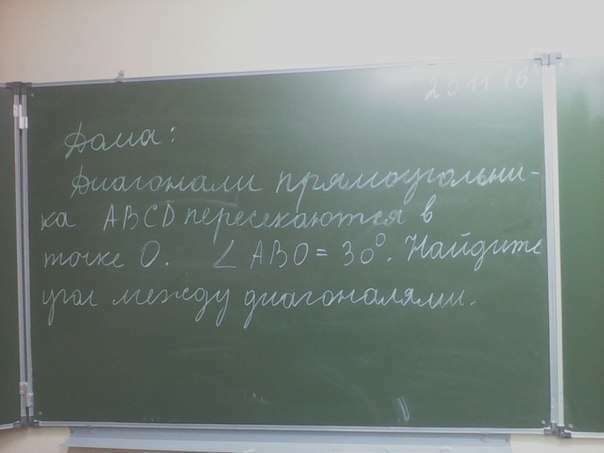 Дома:
Диагонали прямоугольни-
ка ABCD пересекаются в
точке O. ∠ ABO = 30°. Найдите
угол между диагоналями.